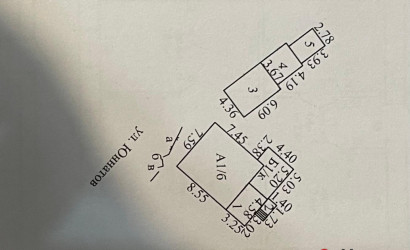 2.78
5
3.93
4
3.67
4.19
3
6.09
4.36
7.45
7.59
2.38
4.40
Б/к
5.20
5.03
А1/6
8.55
1
4.58
3.25
ул. Юннатов
а
6
в